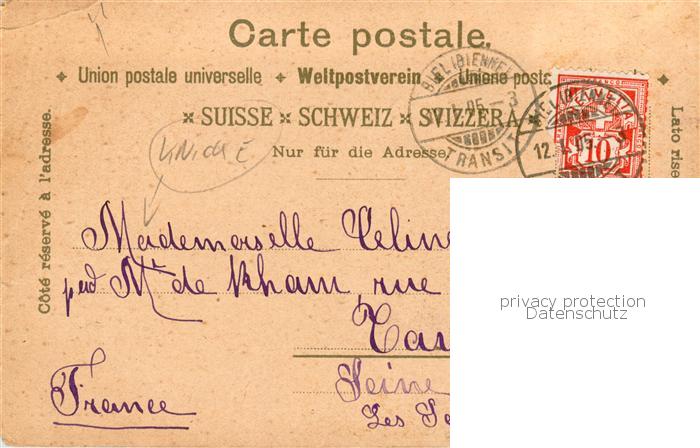 Carte postale.
Union postale universelle Weltpostverein Unione posta
SUISSE SCHWEIZ SVIZZERA
Nur für die Adresse
Côté réservé à l'adresse.
Lato rise
BIEL (BIENNE)
05 - 3
TRANSIT
12
05
10
Mademoiselle Celine
Mr de Kham, rue
Seine
Les
France
privacy protection
Datenschutz